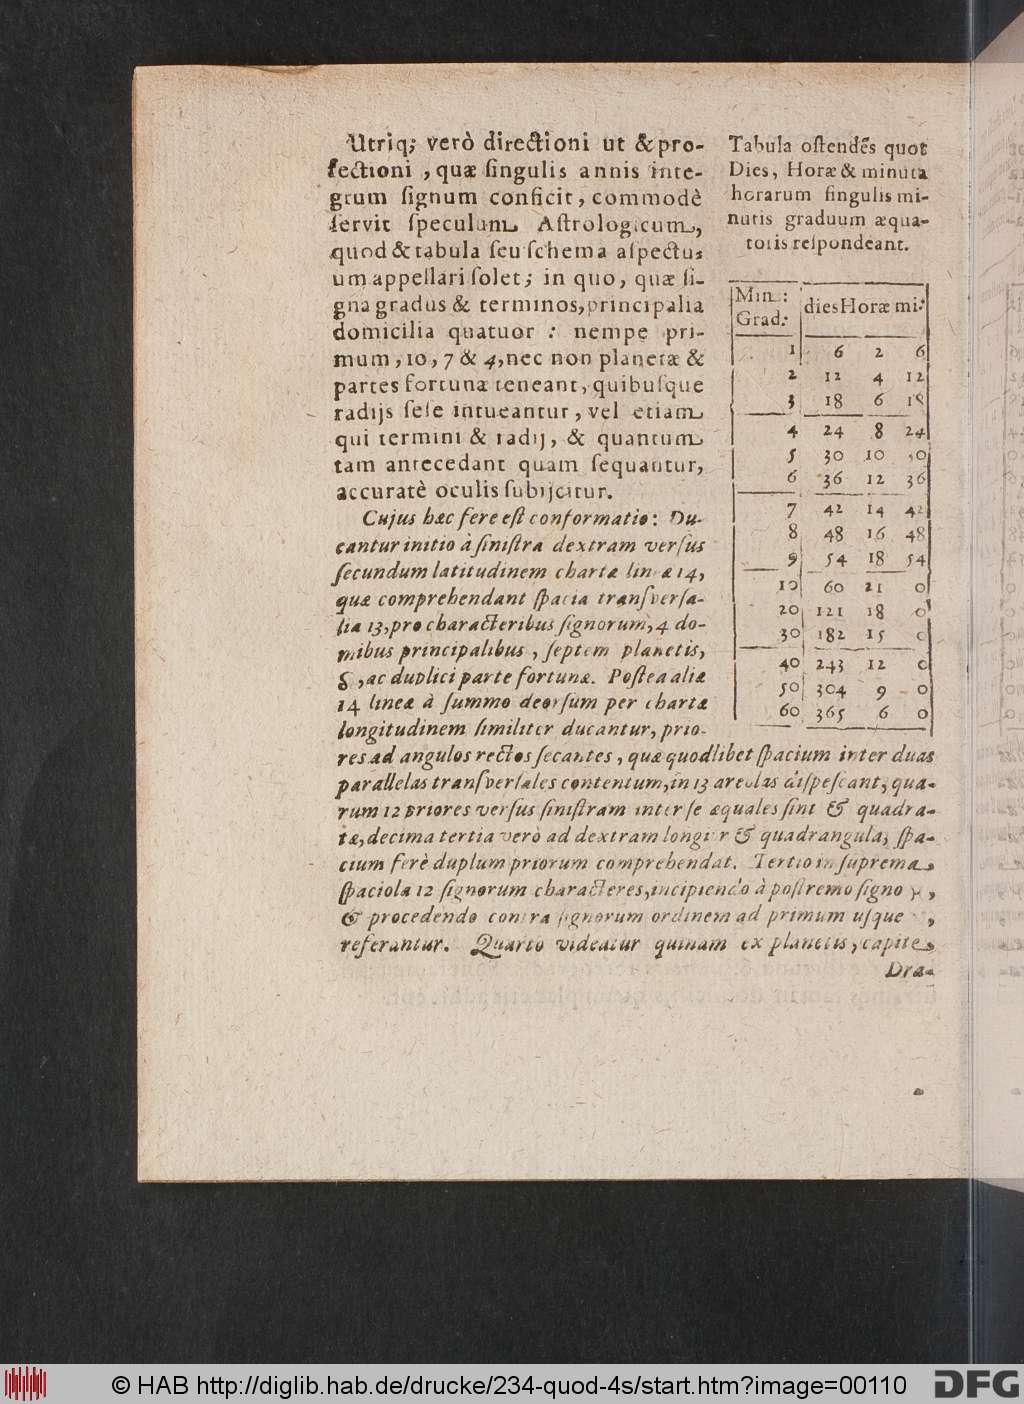 Utriq; verò directioni ut & pro-
fectioni, quæ ſingulis annis inte-
grum ſignum conficit, commodè
ſervit ſpeculum Aſtrologicum,
quod & tabula ſeu ſchema aſpectu-
um appellari ſolet; in quo, quæ ſi-
gna gradus & terminos, principalia
domicilia quatuor : nempe pri-
mum, 10, 7 & 4, nec non planetæ &
partes fortunæ teneant, quibuſque
radijs ſeſe intueantur, vel etiam
qui termini & radij, & quantum
tam antecedant quam ſequantur,
accuratè oculis ſubijcitur.
Cujus hæc fere eſt conformatio: Du-
cantur initio à ſiniſtra dextram verſus
ſecundum latitudinem chartæ lineæ 14,
quæ comprehendant ſpacia tranſverſa-
lia 13, pro characteribus ſignorum, 4 do-
mibus principalibus, ſeptem planetis,
☊, ac duplici parte fortunæ. Poſtea aliæ
14 lineæ à ſummo deorſum per chartæ
longitudinem ſimiliter ducantur, prio-
Tabula oſtendẽs quot
Dies, Horæ & minuta
horarum ſingulis mi-
nutis graduum æqua-
toris reſpondeant.
Min: Grad: dies Horæ mi:
1 6 2 6
2 12 4 12
3 18 6 18
4 24 8 24
5 30 10 30
6 36 12 36
7 42 14 42
8 48 16 48
9 54 18 54
10 60 21 0
20 121 18 0
30 182 15 0
40 243 12 0
50 304 9 0
60 365 6 0
res ad angulos rectos ſecantes, quæ quodlibet ſpacium inter duas
parallelas tranſverſales contentum, in 13 areolas diſpeſcant, qua-
rum 12 priores verſus ſiniſtram inter ſe æquales ſint & quadra-
tæ, decima tertia verò ad dextram longior & quadrangula, ſpa-
cium ferè duplum priorum comprehendat. Tertio in ſuprema
ſpaciola 12 ſignorum characteres, incipiendo à poſtremo ſigno ♓,
& procedendo contra ſignorum ordinem ad primum uſque ,
referantur. Quarto videatur quinam ex planetis, capite
Dra-
© HAB http://diglib.hab.de/drucke/234-quod-4s/start.htm?image=00110
DFG